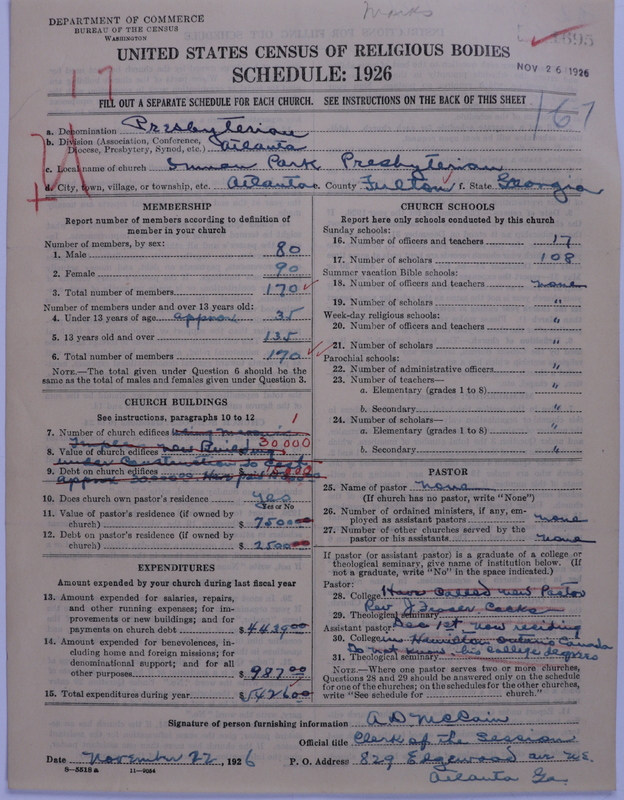 Marks
DEPARTMENT OF COMMERCE
BUREAU OF THE CENSUS
WASHINGTON
NOV 26 1926
UNITED STATES CENSUS OF RELIGIOUS BODIES
SCHEDULE: 1926
17
FILL OUT A SEPARATE SCHEDULE FOR EACH CHURCH. SEE INSTRUCTIONS ON THE BACK OF THIS SHEET
167
a. Denomination Presbyterian
b. Division (Association, Conference, Diocese, Presbytery, Synod, etc.) Atlanta
c. Local name of church Inman Park Presbyterian
d. City, town, village, or township, etc. Atlanta e. County Fulton f. State Georgia
MEMBERSHIP
Report number of members according to definition of
member in your church
Number of members, by sex:
1. Male 80
2. Female 90
3. Total number of members 170
Number of members under and over 13 years old:
4. Under 13 years of age approx 35
5. 13 years old and over 135
6. Total number of members 170
NOTE.—The total given under Question 6 should be
same as the total of males and females given under Question 3.
CHURCH BUILDINGS
See instructions, paragraphs 10 to 12
7. Number of church edifices using Masonic 1
Temple
8. Value of church edifices new Building 30,000
under Construction to Cost
9. Debt on church edifices $
approx 30000.00 Have paid
10. Does church own pastor's residence Yes
Yes or No
11. Value of pastor's residence (if owned by
church) $ 7500.00
12. Debt on pastor's residence (if owned by
church) $ 2500.00
EXPENDITURES
Amount expended by your church during last fiscal year
13. Amount expended for salaries, repairs,
and other running expenses; for im-
provements or new buildings; and for
payments on church debt $ 4439.00
14. Amount expended for benevolences, in-
cluding home and foreign missions; for
denominational support; and for all
other purposes $ 987.00
15. Total expenditures during year $ 5426.00
CHURCH SCHOOLS
Report here only schools conducted by this church
Sunday schools:
16. Number of officers and teachers 17
17. Number of scholars 108
Summer vacation Bible schools:
18. Number of officers and teachers none
19. Number of scholars "
Week-day religious schools:
20. Number of officers and teachers "
21. Number of scholars "
Parochial schools:
22. Number of administrative officers "
23. Number of teachers—
a. Elementary (grades 1 to 8) "
b. Secondary "
24. Number of scholars—
a. Elementary (grades 1 to 8) "
b. Secondary "
PASTOR
25. Name of pastor none
(If church has no pastor, write "None")
26. Number of ordained ministers, if any, em-
ployed as assistant pastors none
27. Number of other churches served by the
pastor or his assistants none
If pastor (or assistant pastor) is a graduate of a college or
theological seminary, give name of institution below. (If
not a graduate, write "No" in the space indicated.)
Pastor:
28. College Have Called new Pastor
Rev J Fraser Cocks
29. Theological seminary
Assistant pastor: Dec 1st now residing
30. College in Hamilton Ontario Canada
Do not know his College degrees
31. Theological seminary
NOTE.—Where one pastor serves two or more churches,
Questions 28 and 29 should be answered only on the schedule
for one of the churches; on the schedules for the other churches,
write "See schedule for church."
Signature of person furnishing information A D McCain
Official title Clerk of the Session
Date November 22, 1926 P. O. Address 829 Edgewood av N.E.
Atlanta Ga.
8—5518a 11—9084